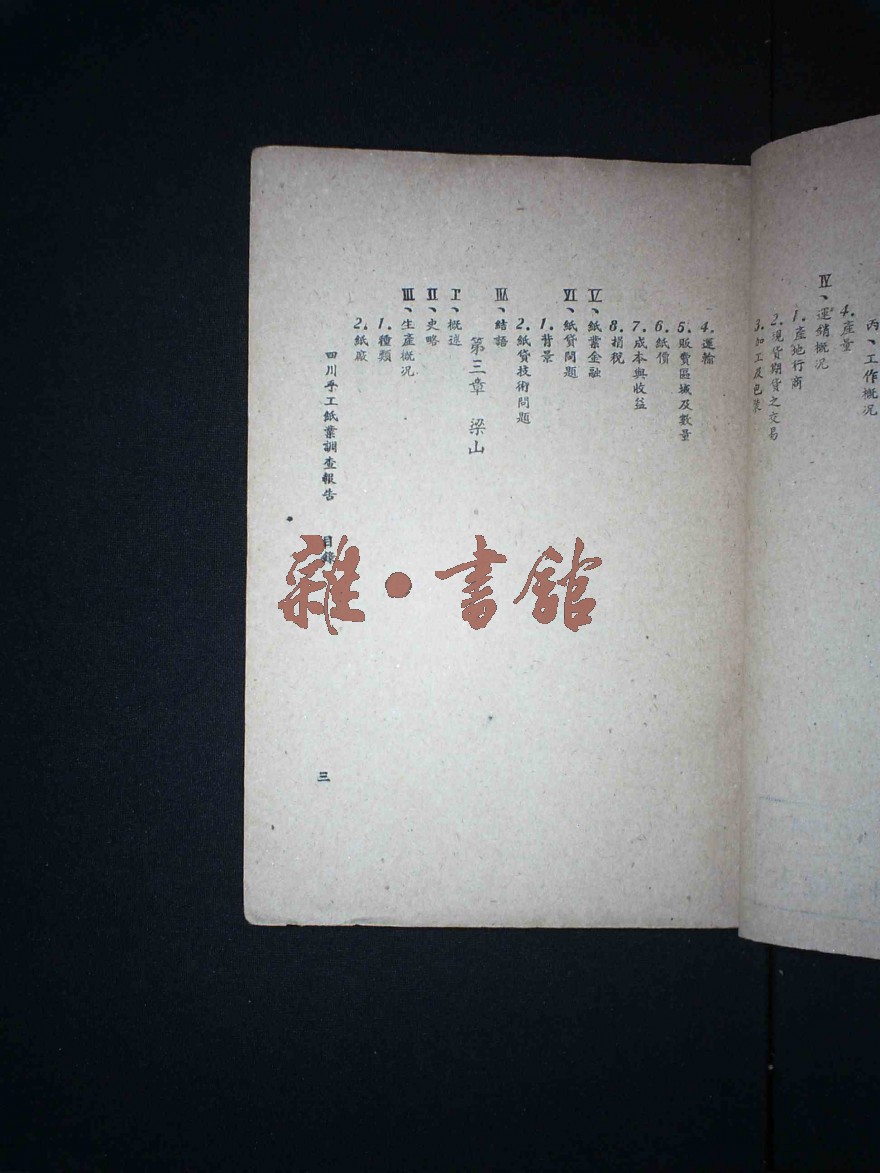 丙、工作概况
4.產量
Ⅳ、運銷概况
1.產地行商
2.現貨期貨之交易
3.加工及包装
4.運輸
5.販賣區域及數量
6.紙價
7.成本與收益
8.捐稅
Ⅴ、紙業金融
Ⅵ、紙貸問題
1.背景
2.紙貸技術問題
Ⅶ、結語
第三章 梁山
Ⅰ、概述
Ⅱ、史略
Ⅲ、生產概况
1.種類
2.紙廠
四川手工紙業調查報告 目錄
三
雜·書館